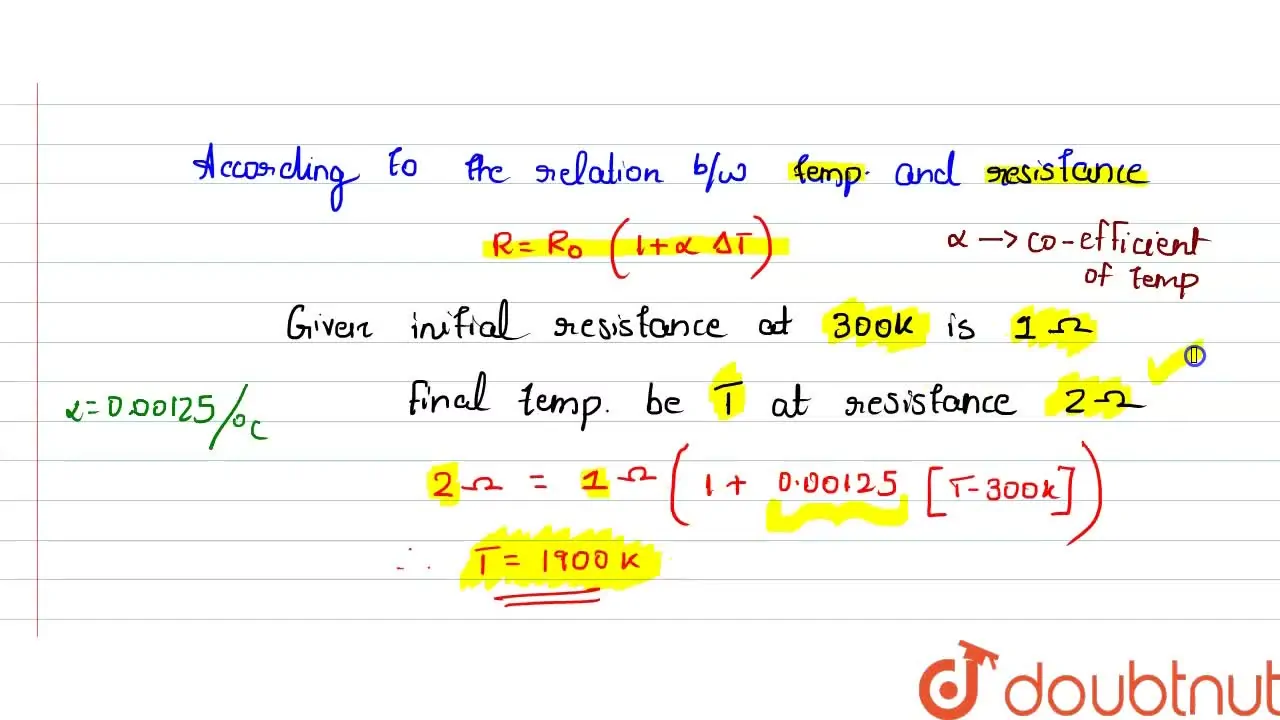 According to the relation b/w temp. and resistance
R = R₀ (1 + α ΔT)
α → co-efficient
of temp
Given initial resistance at 300K is 1Ω
final temp. be T at resistance 2Ω
α = 0.00125/°C
2Ω = 1Ω (1 + 0.00125 [T - 300K])
∴ T = 1900K
doubtnut